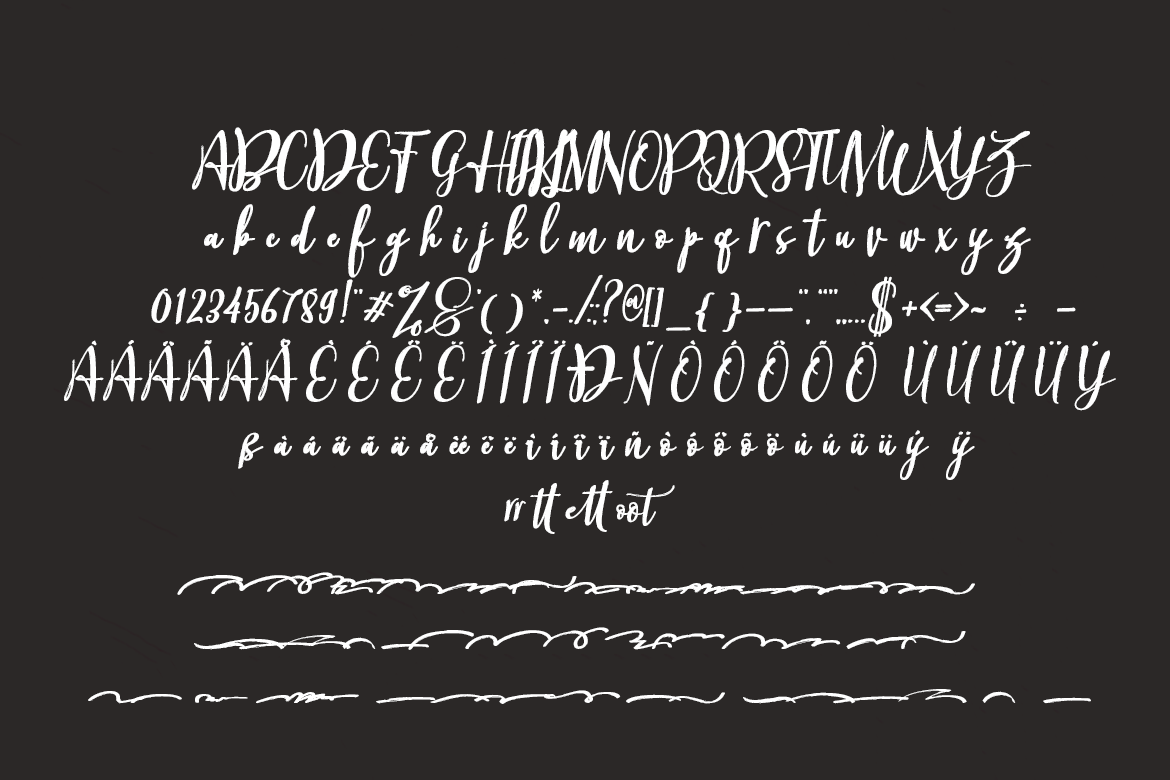 ABCDEFGHIJKLMNOPQRSTUVWXYZ
a b c d e f g h i j k l m n o p q r s t u v w x y z
0123456789!"#%&'()*,-./:;?@[]_{}——“”‘’„…$+<=>~ ÷ -
ÀÁÂÃÄÅÈÉÊËÌÍÎÏÐÑÒÓÔÕÖ ÙÚÛÜÝ
ß à á â ã ä å è é ê ë ì í î ï ñ ò ó ô õ ö ù ú û ü ý ÿ
rr tt ett oot